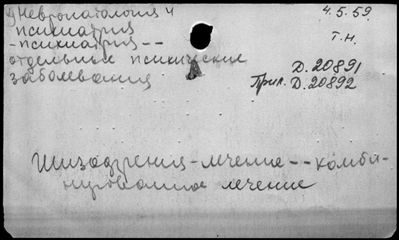 Невропатология и
психиатрия
- психиатрия --
отдельные психические
заболевания
4.5.59
т.н.
Д.20891
Прил. Д.20892
Шизофрения - лечение -- комби-
нированное лечение